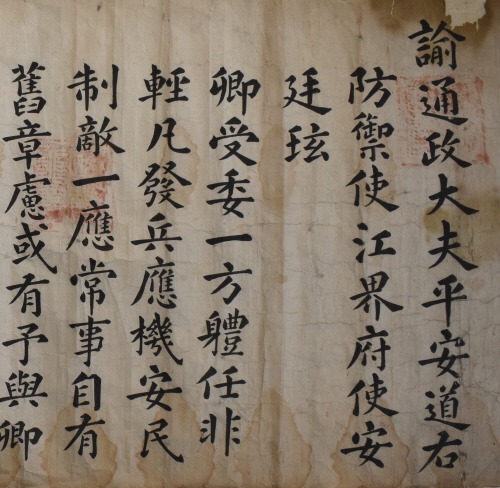 諭通政大夫平安道右
防禦使江界府使安
廷玹
卿受委一方軆任非
輕凡發兵應機安民
制敵一應常事自有
舊章慮或有予與卿